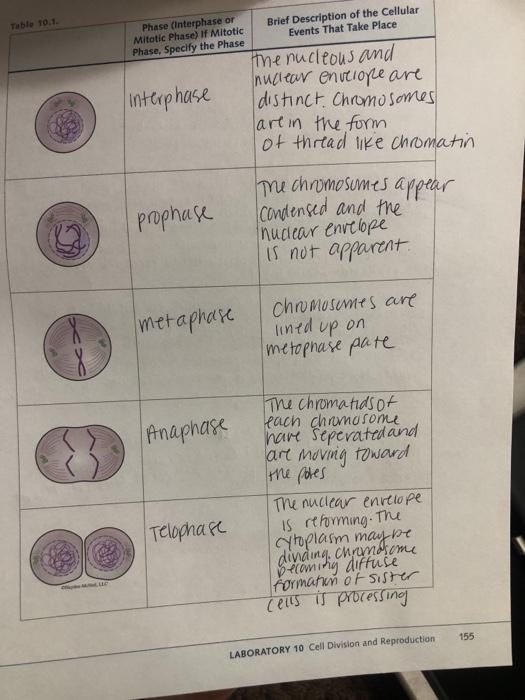 Table 10.1.
Phase (Interphase or
Mitotic Phase) If Mitotic
Phase, Specify the Phase
Brief Description of the Cellular
Events That Take Place
Interphase
The nucleous and
nuclear envelope are
distinct. Chromosomes
are in the form
of thread like chromatin
prophase
The chromosomes appear
condensed and the
nuclear envelope
is not apparent.
metaphase
Chromosomes are
lined up on
metophase pate
Anaphase
The chromatids of
each chromosome
have seperated and
are moving toward
the poles
Telophase
The nuclear envelope
is reforming. The
cytoplasm may be
dividing. chromosome
becoming diffuse
formation of sister
cells is processing
LABORATORY 10 Cell Division and Reproduction 155